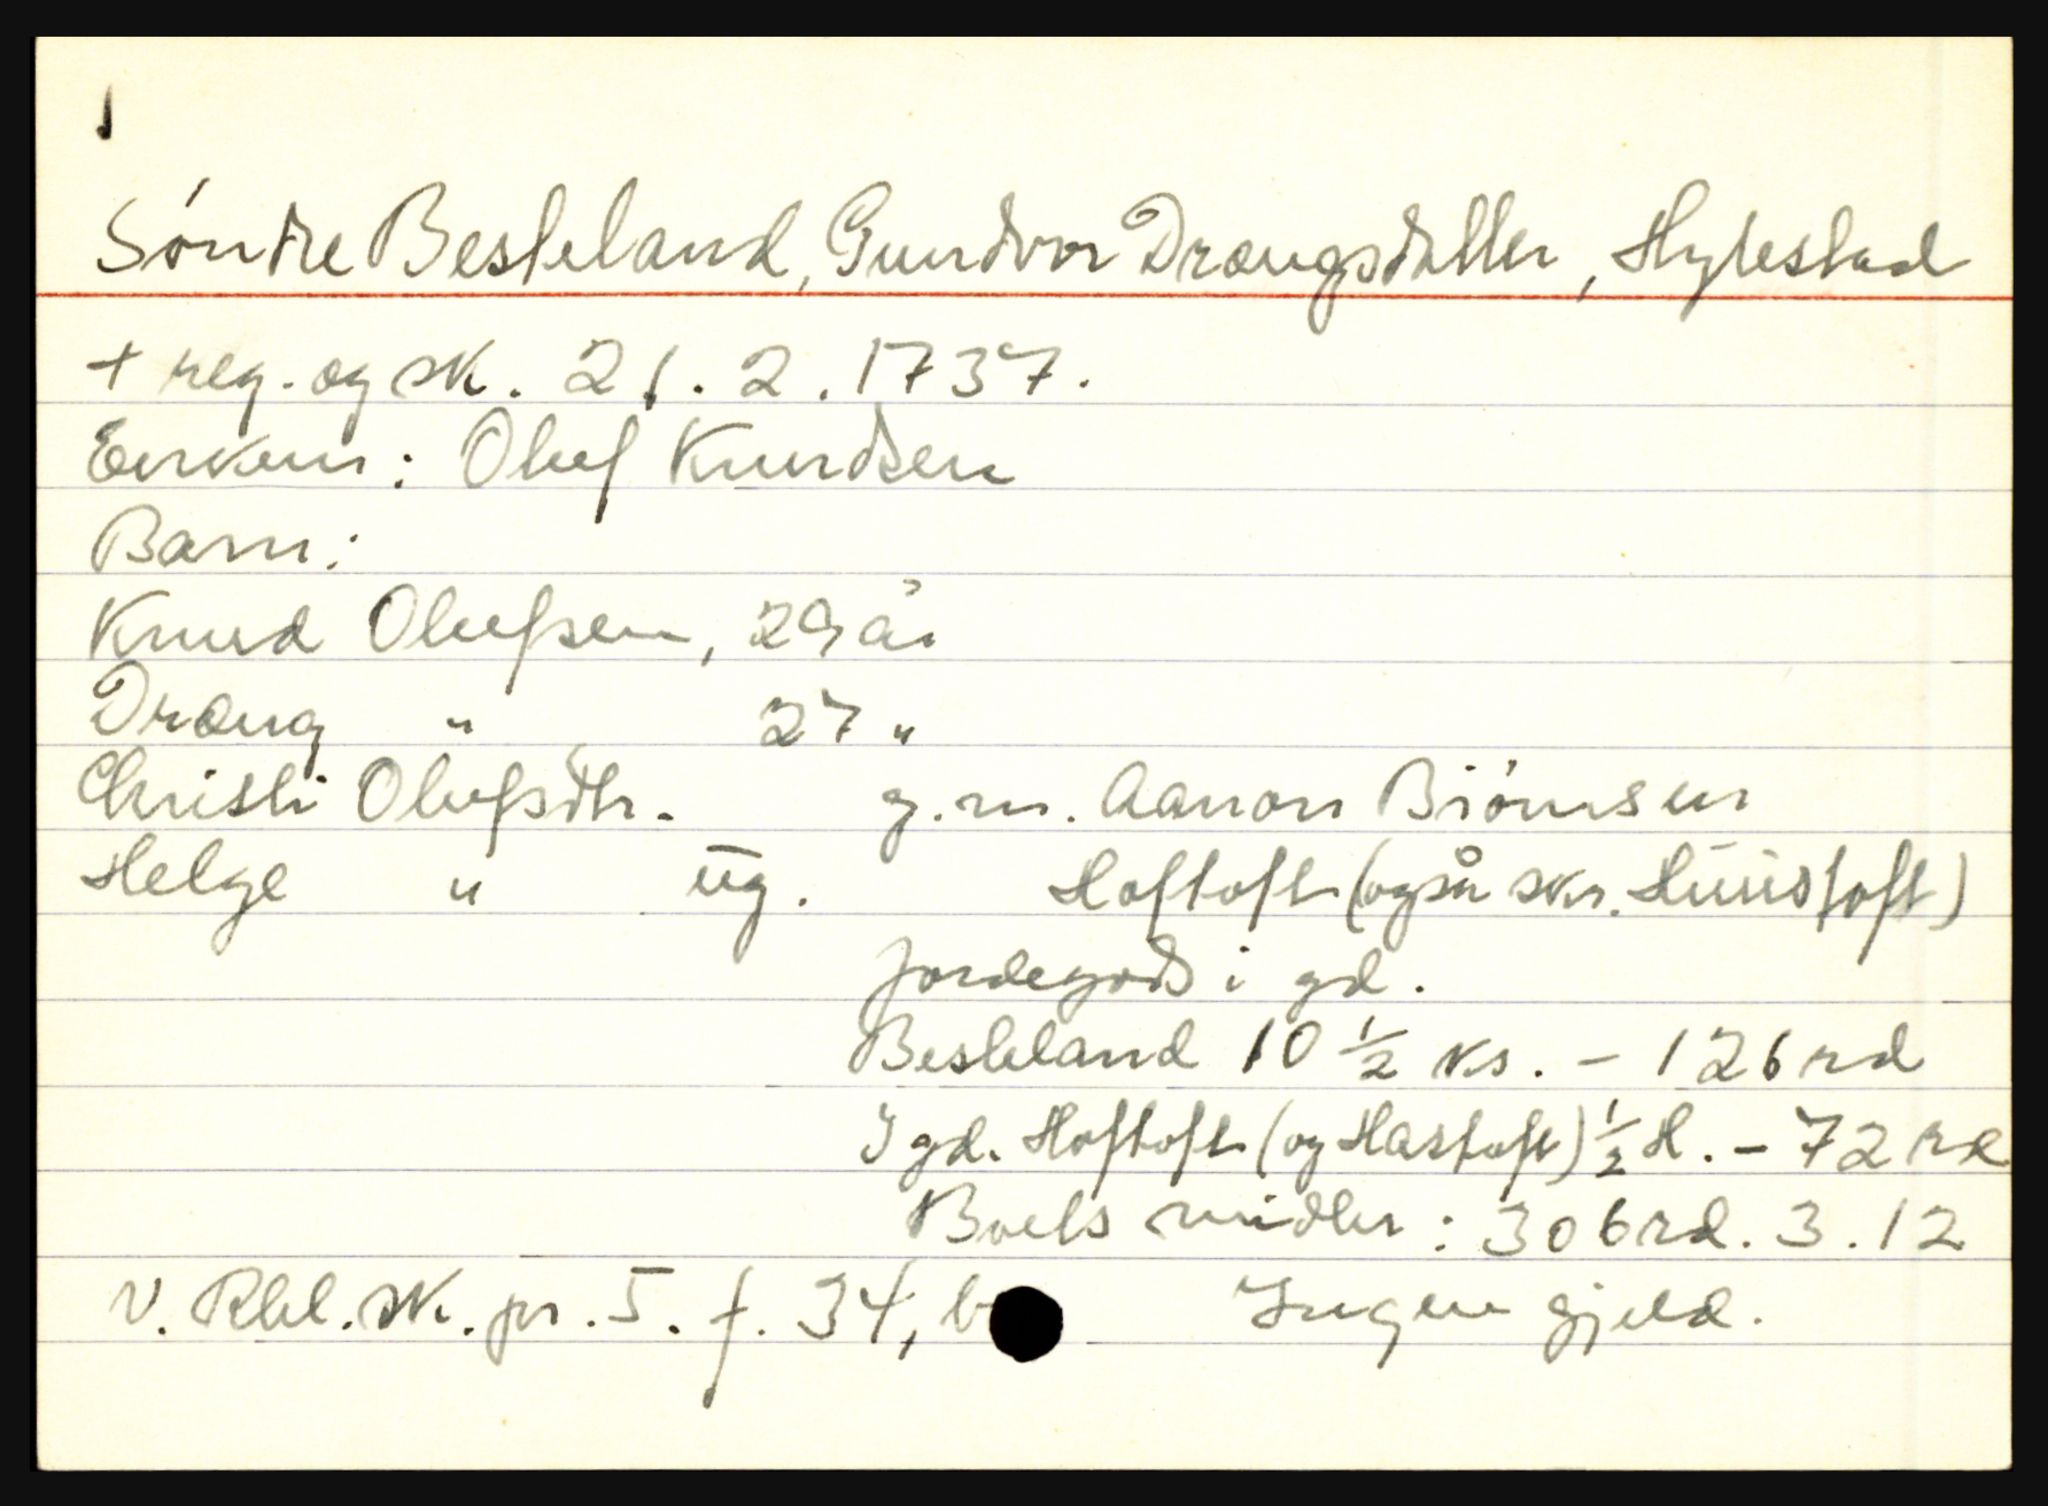 Søndre Besteland, Gundvor Drængsdatter, Hylestad
+ reg. og sk. 21.2.1737.
Enkem: Oluf Knudsen
Barn:
Knud Olufsen, 29 år
Dræng " 27 "
Christi Olufsdtr. g.m. Aanon Biørnsen
Helge " ug. Hoftoft (også skr. Huustoft)
Jordegods i gd.
Besteland 10 ½ ks. - 126 rd
I gd. Hoftoft (og Hastoft) ½ H. - 72 rd
Boets midler: 306 rd. 3. 12
V. Rbl. sk. pr. 5. f. 34, b Ingen gjeld.